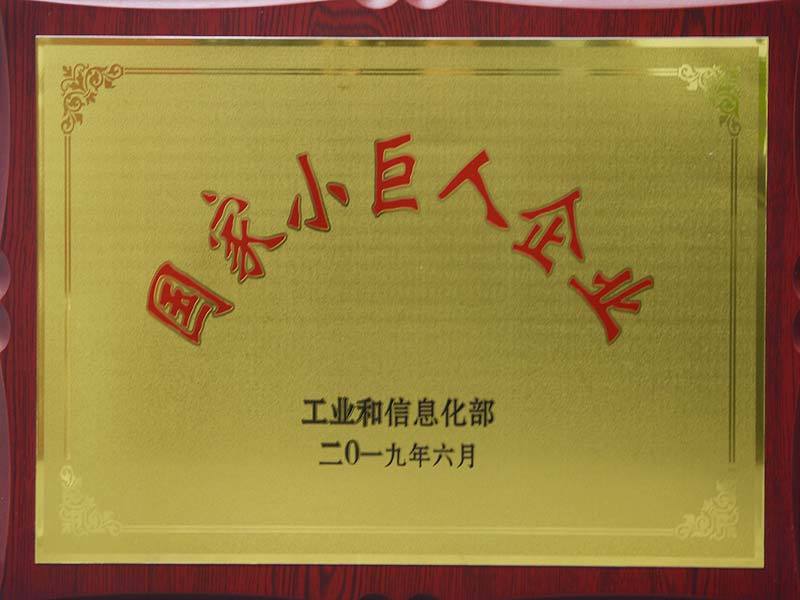 国家小巨人企业
工业和信息化部
二0一九年六月